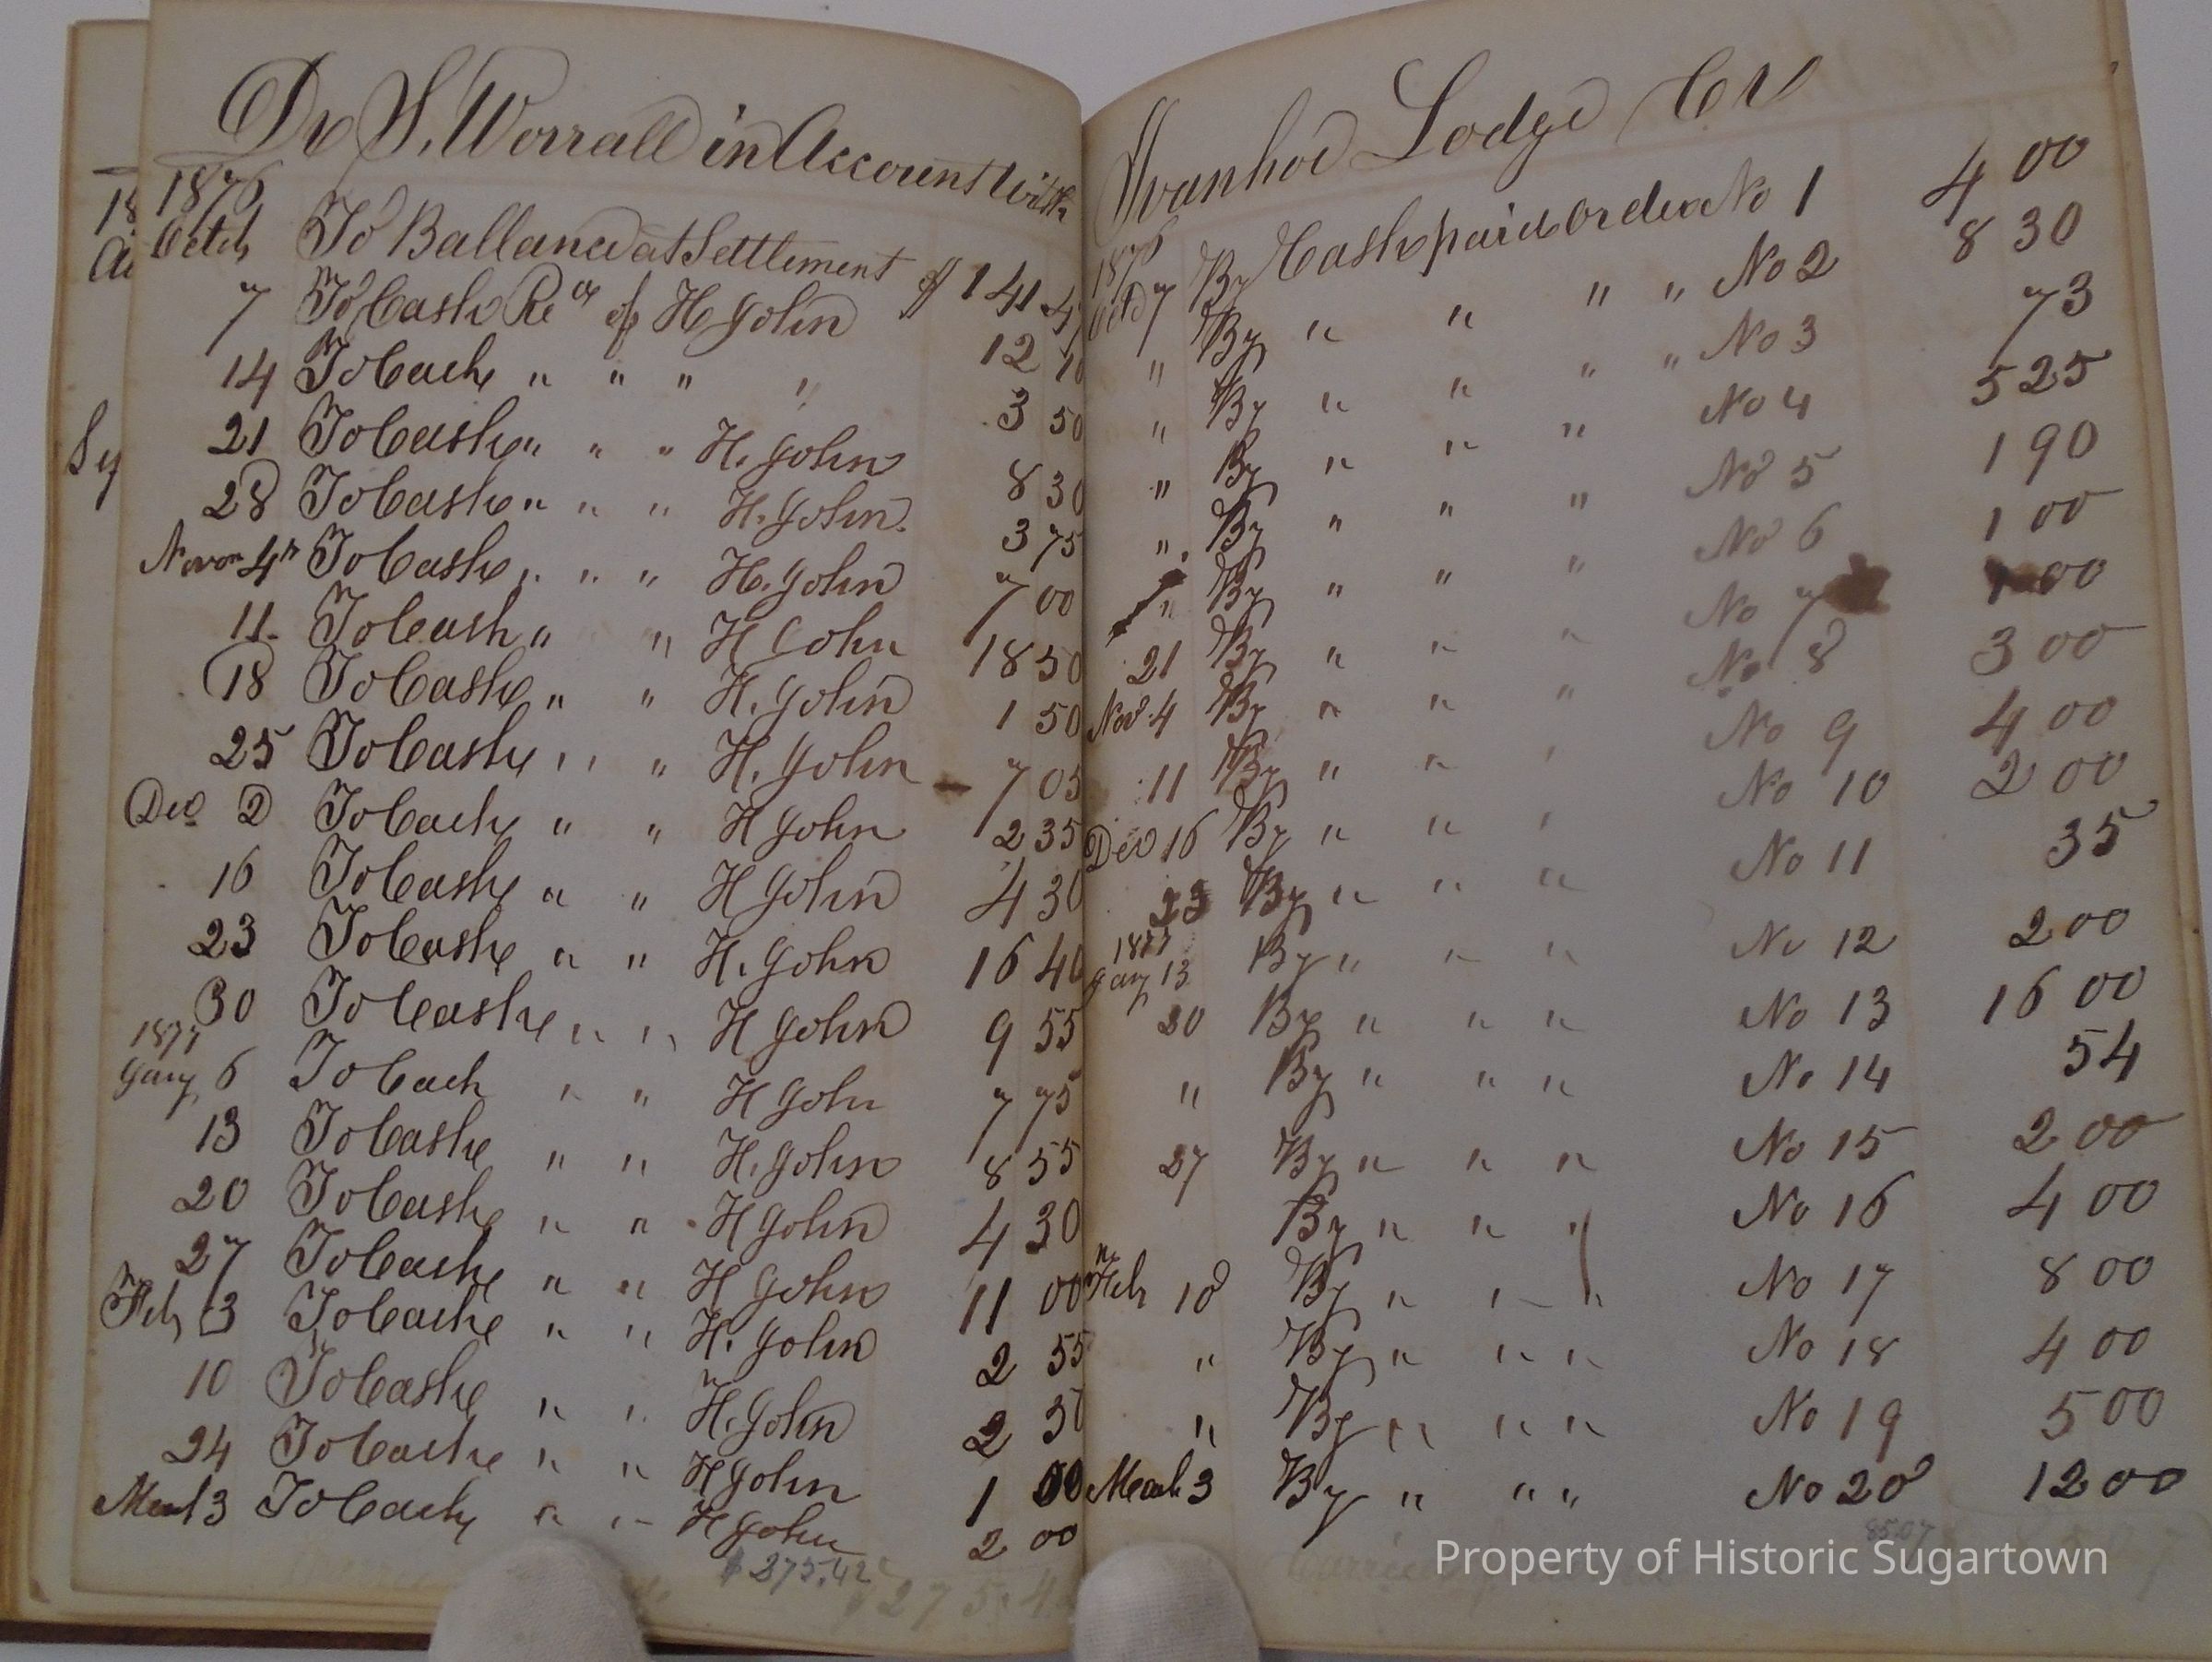 Dr S. Worrall in Account With
1876
Octr To Ballance at Settlement $ 141 4
7 To Cash Recd of H John 12 10
14 To Cash " " " " 3 50
21 To Cash " " " H. John 8 30
28 To Cash " " " H. John. 3 75
4th To Cash " " " H. John 7 00
11. To Cash " " H John 18 50
18 To Cash " " H. John 1 50
25 To Cash " " " H. John 7 05
Dec 2 To Cash " " H John 2 35
16 To Cash " " H John 4 30
23 To Cash " " H. John 16 40
30 To Cash " " H John 9 55
1877
Jany 6 To Cash " " H John 7 75
13 To Cash " " H. John 8 55
20 To Cash " " H John 4 30
27 To Cash " " H John 11 00
Feb 3 To Cash " " H. John 2 55
10 To Cash " " H. John 2 30
24 To Cash " " H John 1 00
3 To Cash " " H John 2 00
$ 275.42
Ivanhoe Lodge Cr
1876
Oct 7 By Cash paid order No 1 4 00
" By " " " " No 2 8 30
" By " " " " No 3 73
" By " " " No 4 5 25
" By " " " No 5 1 90
" By " " " No 6 1 00
21 By " " " No 7 1 00
Nov 4 By " " " No 8 3 00
11 By " " " No 9 4 00
Dec 16 By " " " No 10 2 00
23 By " " " No 11 35
1877
Jany 13 By " " " No 12 2 00
20 By " " " No 13 16 00
" By " " " No 14 54
27 By " " " No 15 2 00
By " " " No 16 4 00
Feb 10 By " " " No 17 8 00
" By " " " No 18 4 00
" By " " " No 19 5 00
3 By " " " No 20 12 00
85.07
Property of Historic Sugartown